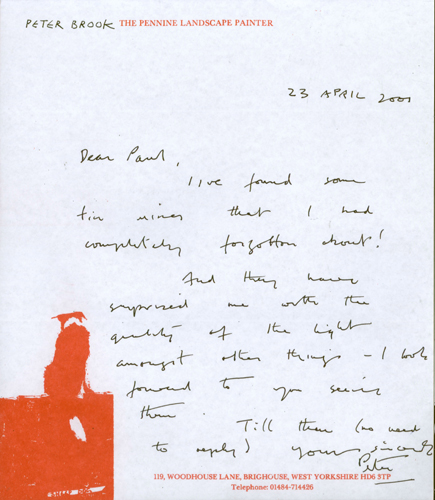 PETER BROOK THE PENNINE LANDSCAPE PAINTER
23 APRIL 2001
Dear Paul,
I've found some
tin mines that I had
completely forgotten about!
And they have
surprised me with the
quality of the light
amongst other things - I look
forward to you seeing
them.
Till then (no need
to reply) yours sincerely
Peter
119, WOODHOUSE LANE, BRIGHOUSE, WEST YORKSHIRE HD6 3TP
Telephone: 01484-714426